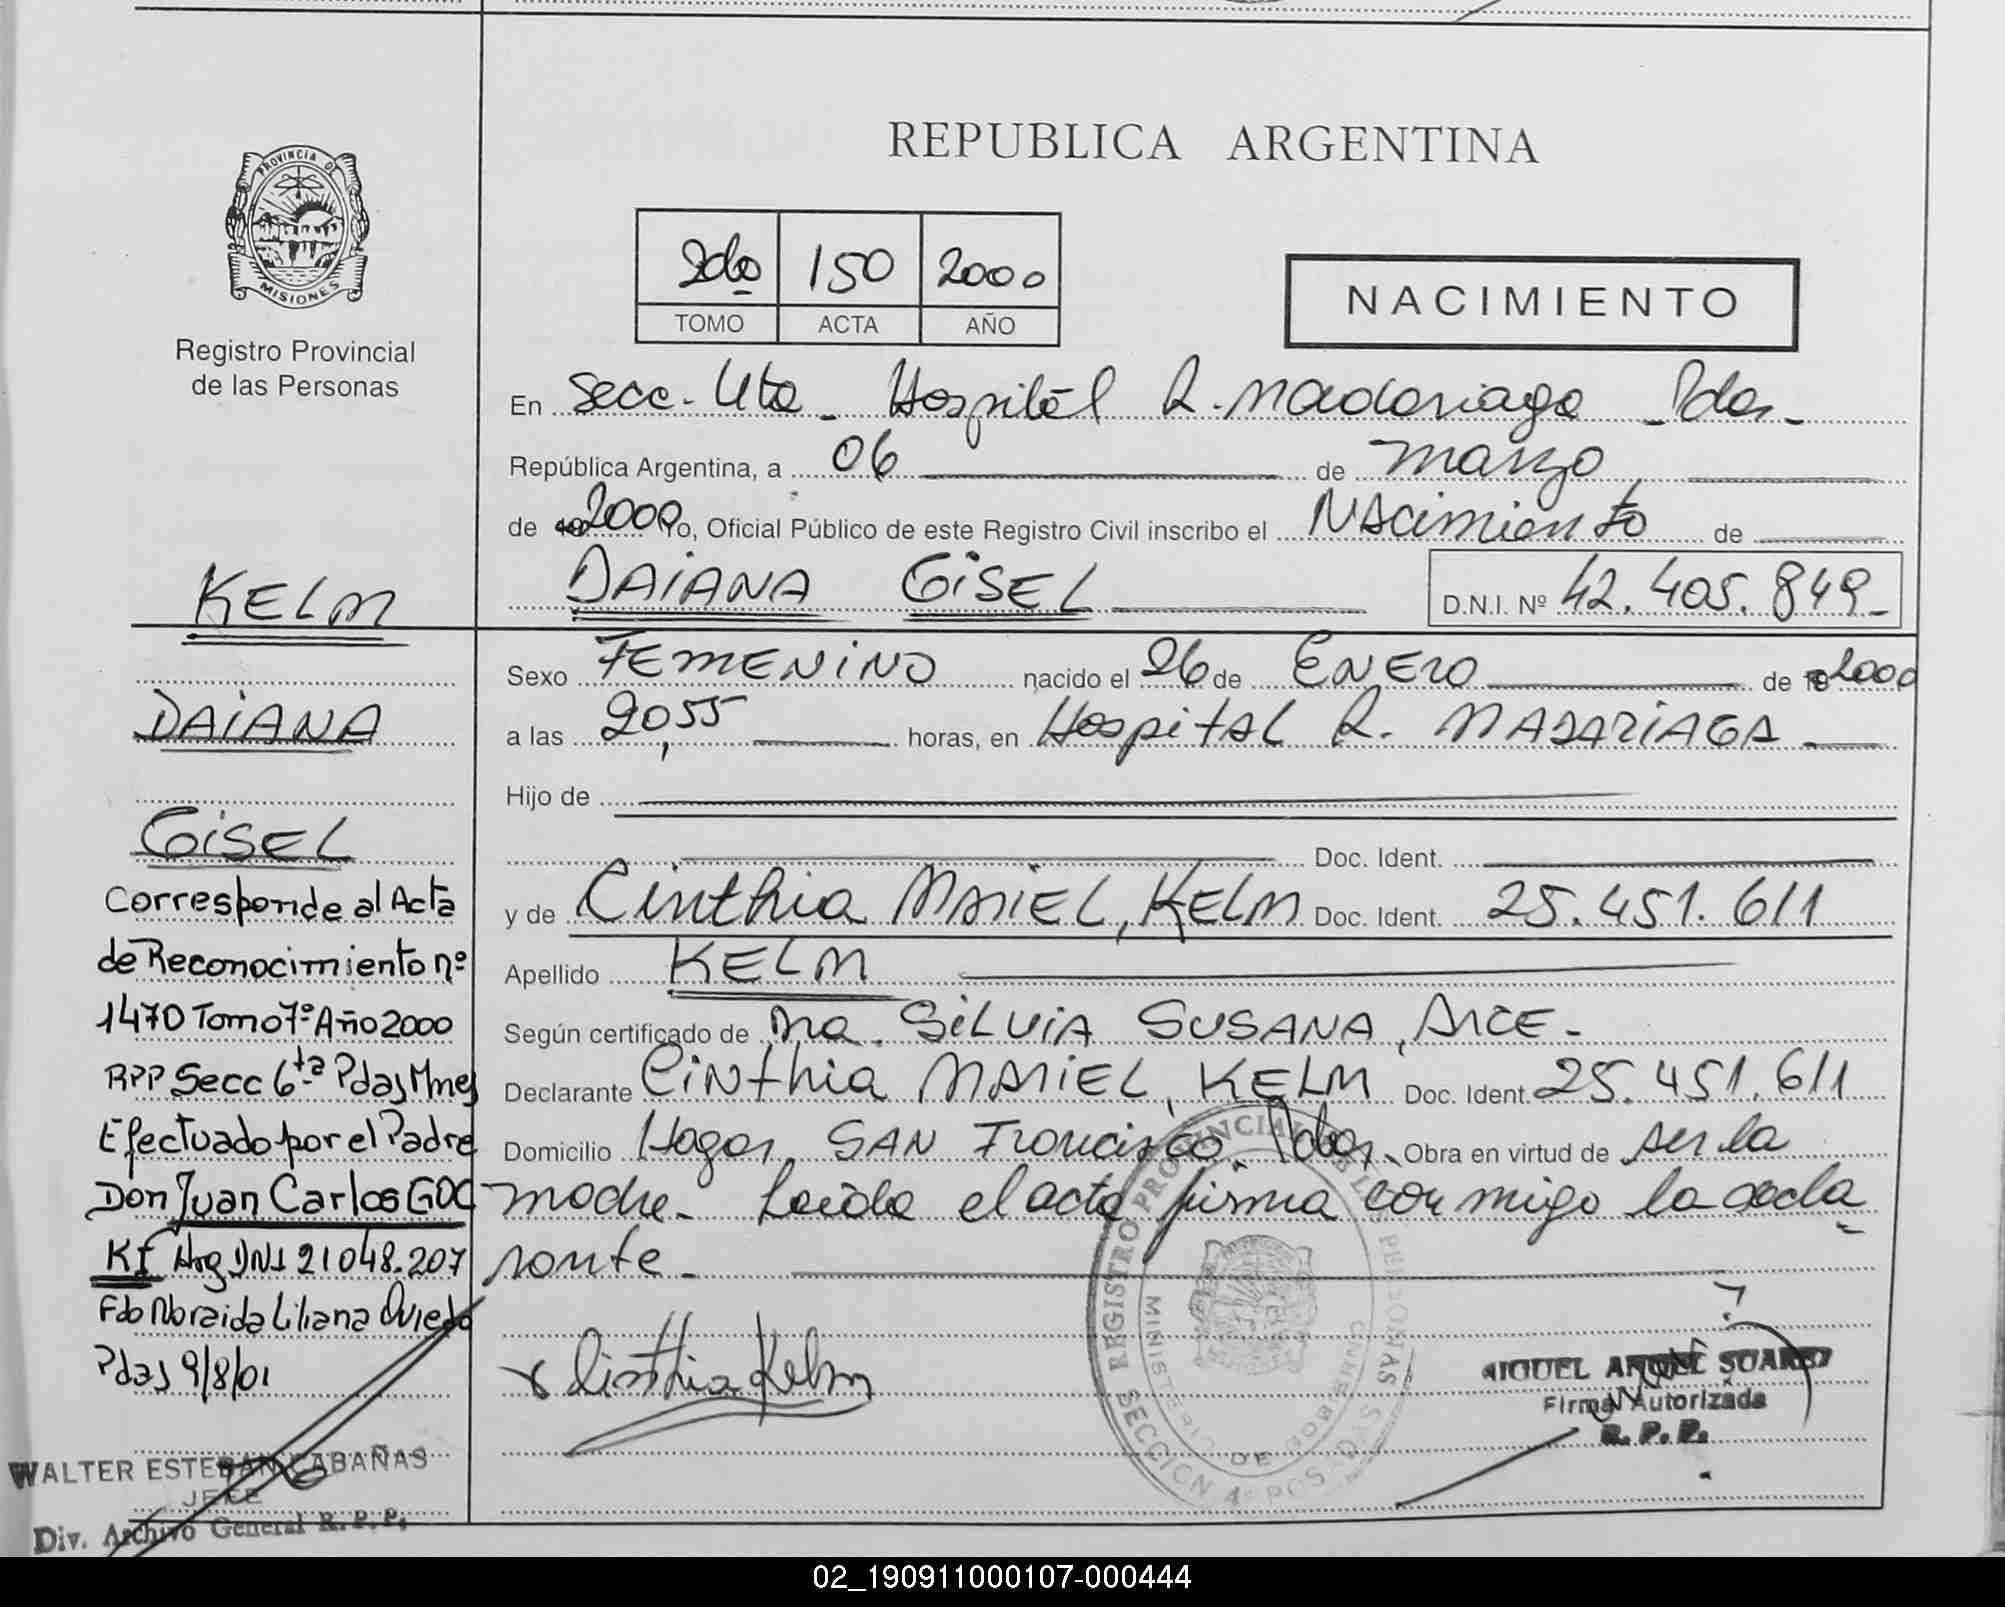 REPUBLICA ARGENTINA
PROVINCIA DE
MISIONES
Registro Provincial
de las Personas
2do 150 2000
TOMO ACTA AÑO
NACIMIENTO
En Secc. 4ta - Hospital R. Madariaga - Pdas -
República Argentina, a 06 de marzo
de 2000 Yo, Oficial Público de este Registro Civil inscribo el Nacimiento de
DAIANA GISEL D.N.I. Nº 42.405.849-
Sexo FEMENINO nacido el 26 de ENERO de 2000
a las 20,55 horas, en Hospital R. MADARIAGA
Hijo de
Doc. Ident.
y de Cinthia MARIEL, KELM Doc. Ident. 25.451.611
Apellido KELM
Según certificado de SILVIA SUSANA, ARCE -
Declarante Cinthia MARIEL, KELM Doc. Ident. 25.451.611
Domicilio Hogar SAN Francisco Pdas. Obra en virtud de ser la
madre - Leída el acta firma conmigo la decla
rante -
Cinthia Kelm
REGISTRO PROVINCIAL DE LAS PERSONAS
MINISTERIO DE GOBIERNO
SECCION 4ª POSADAS
MIGUEL ANGEL SUAREZ
Firma Autorizada
R. P. P.
KELM
DAIANA
GISEL
Corresponde al Acta
de Reconocimiento nº
1470 Tomo 7º Año 2000
RPP Secc 6ta Pdas Mnes
Efectuado por el Padre
Don Juan Carlos GOC
KI Arg DNI 21048.207
Fdo Noraida Liliana Oviedo
Pdas 9/8/01
WALTER ESTEBAN CABAÑAS
JEFE
Div. Archivo General R. P. P.
02_190911000107-000444